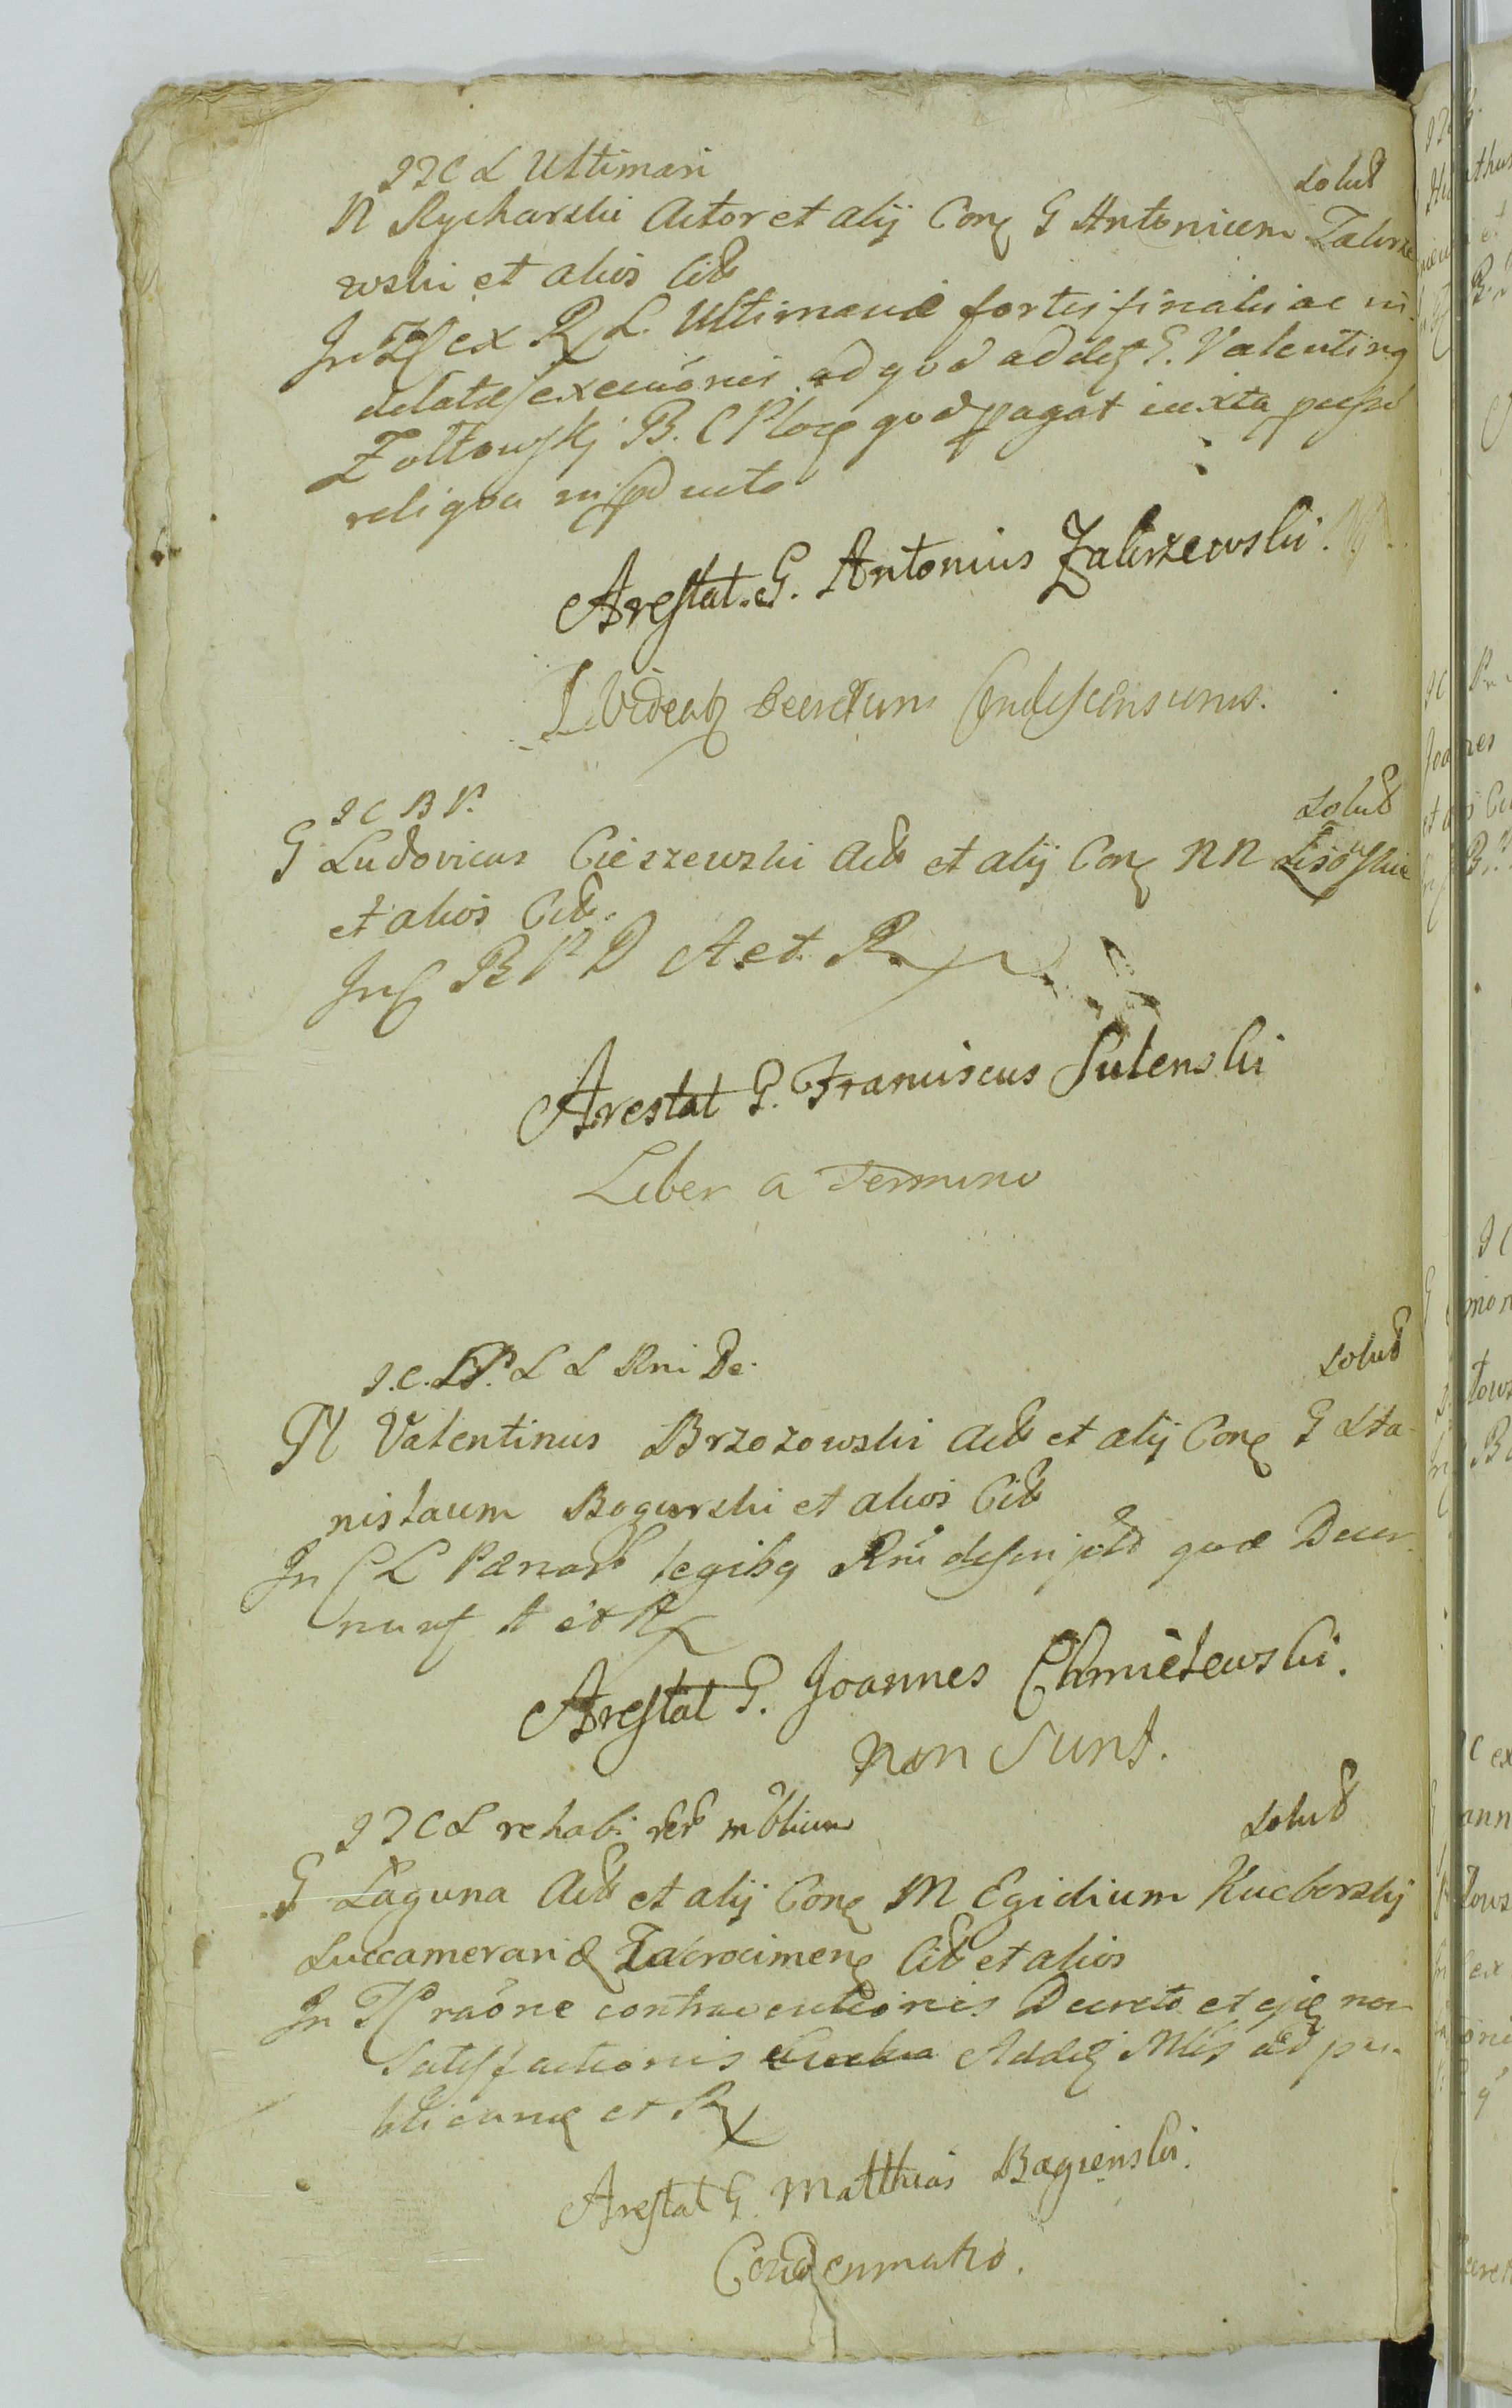 J T C L Ultimari
solut
N Rycharski Actor et alij Con G Antonium Zakrze
wski et alios Cit
In ex R L. Ultimariæ fortis finalis ac in
delatæ execuōnis ad qvod addit G. Valenting
Zołtowskj B. C Ploc qvod pagat iuxta
reliqva
Arestat. G. Antonius Zakrzewski.
Videat Decretum Condescensum.
J C B P.
Solut
G Ludovicus Cieszewski Act et alij Con N N
et alios Cit.
In B P D A et R
Arestat G. Franciscus Sulenski
Liber a Termino
J. C. P. L L Rni De
Solut
N Valentinus Brzozowski Act et alij Con G Sta-
nislaum Bogurski et alios Cit
In C L Pænar legibq Rni quæ Decer
nunt A et R
Arestat G. Joannes Chmielewski.
non sunt.
J T C L rehab: rer mōblium
Solut
G Laguna Act et alij Con M Egidium Kucborskj
Succamerari Zakrocimen Cit et alios
In raōne contraventionis Decreto et ejq non
Satisfactionis Addit ad pu-
blicand et R
Arestat G. Matthias Bagienski.
Condemnatio.